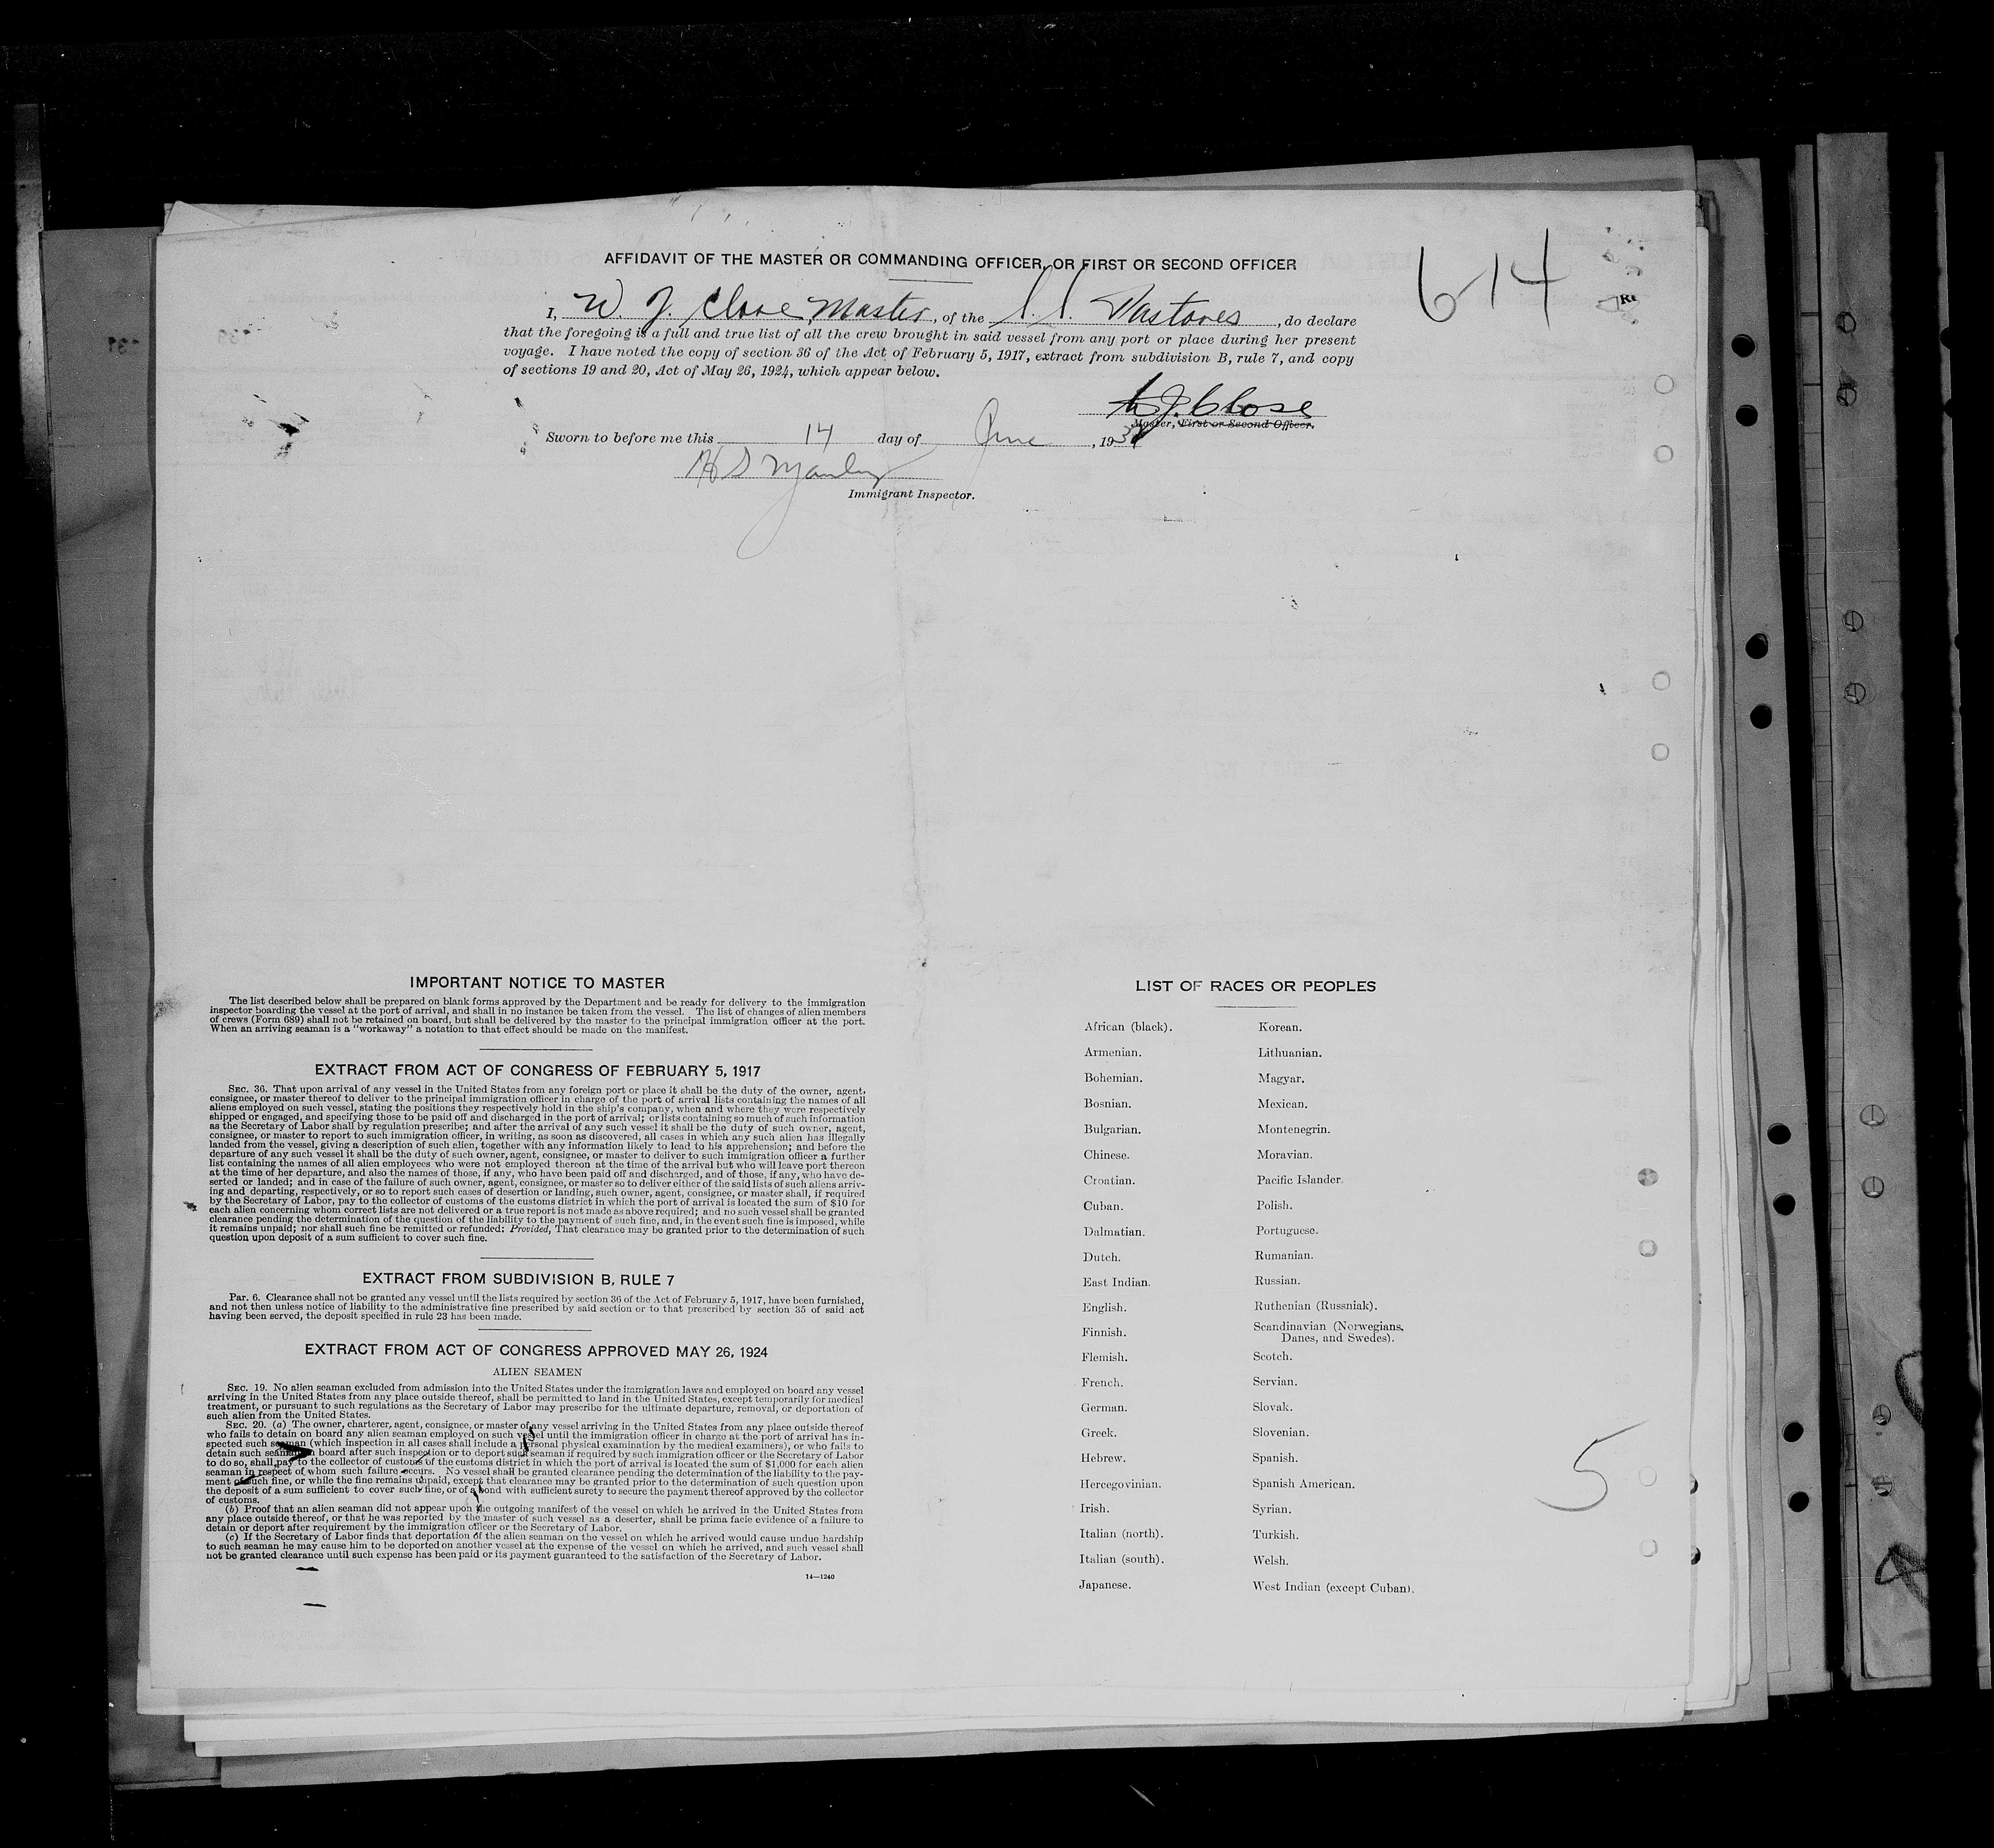 AFFIDAVIT OF THE MASTER OR COMMANDING OFFICER, OR FIRST OR SECOND OFFICER
614
I, W. J. Close, Master, of the S.S. Pastores, do declare
that the foregoing is a full and true list of all the crew brought in said vessel from any port or place during her present
voyage. I have noted the copy of section 36 of the Act of February 5, 1917, extract from subdivision B, rule 7, and copy
of sections 19 and 20, Act of May 26, 1924, which appear below.
W J. Close
Master, First or Second Officer.
Sworn to before me this 14 day of June, 193
H S Manley
Immigrant Inspector.
IMPORTANT NOTICE TO MASTER
The list described below shall be prepared on blank forms approved by the Department and be ready for delivery to the immigration
inspector boarding the vessel at the port of arrival, and shall in no instance be taken from the vessel. The list of changes of alien members
of crews (Form 689) shall not be retained on board, but shall be delivered by the master to the principal immigration officer at the port.
When an arriving seaman is a "workaway" a notation to that effect should be made on the manifest.
EXTRACT FROM ACT OF CONGRESS OF FEBRUARY 5, 1917
SEC. 36. That upon arrival of any vessel in the United States from any foreign port or place it shall be the duty of the owner, agent,
consignee, or master thereof to deliver to the principal immigration officer in charge of the port of arrival lists containing the names of all
aliens employed on such vessel, stating the positions they respectively hold in the ship's company, when and where they were respectively
shipped or engaged, and specifying those to be paid off and discharged in the port of arrival; or lists containing so much of such information
as the Secretary of Labor shall by regulation prescribe; and after the arrival of any such vessel it shall be the duty of such owner, agent,
consignee, or master to report to such immigration officer, in writing, as soon as discovered, all cases in which any such alien has illegally
landed from the vessel, giving a description of such alien, together with any information likely to lead to his apprehension; and before the
departure of any such vessel it shall be the duty of such owner, agent, consignee, or master to deliver to such immigration officer a further
list containing the names of all alien employees who were not employed thereon at the time of the arrival but who will leave port thereon
at the time of her departure, and also the names of those, if any, who have been paid off and discharged, and of those, if any, who have de-
serted or landed; and in case of the failure of such owner, agent, consignee, or master so to deliver either of the said lists of such aliens arriv-
ing and departing, respectively, or so to report such cases of desertion or landing, such owner, agent, consignee, or master shall, if required
by the Secretary of Labor, pay to the collector of customs of the customs district in which the port of arrival is located the sum of $10 for
each alien concerning whom correct lists are not delivered or a true report is not made as above required; and no such vessel shall be granted
clearance pending the determination of the question of the liability to the payment of such fine, and, in the event such fine is imposed, while
it remains unpaid; nor shall such fine be remitted or refunded: Provided, That clearance may be granted prior to the determination of such
question upon deposit of a sum sufficient to cover such fine.
EXTRACT FROM SUBDIVISION B, RULE 7
Par. 6. Clearance shall not be granted any vessel until the lists required by section 36 of the Act of February 5, 1917, have been furnished,
and not then unless notice of liability to the administrative fine prescribed by said section or to that prescribed by section 35 of said act
having been served, the deposit specified in rule 23 has been made.
EXTRACT FROM ACT OF CONGRESS APPROVED MAY 26, 1924
ALIEN SEAMEN
SEC. 19. No alien seaman excluded from admission into the United States under the immigration laws and employed on board any vessel
arriving in the United States from any place outside thereof, shall be permitted to land in the United States, except temporarily for medical
treatment, or pursuant to such regulations as the Secretary of Labor may prescribe for the ultimate departure, removal, or deportation of
such alien from the United States.
SEC. 20. (a) The owner, charterer, agent, consignee, or master of any vessel arriving in the United States from any place outside thereof
who fails to detain on board any alien seaman employed on such vessel until the immigration officer in charge at the port of arrival has in-
spected such seaman (which inspection in all cases shall include a personal physical examination by the medical examiners), or who fails to
detain such seaman on board after such inspection or to deport such seaman if required by such immigration officer or the Secretary of Labor
to do so, shall pay to the collector of customs of the customs district in which the port of arrival is located the sum of $1,000 for each alien
seaman in respect of whom such failure occurs. No vessel shall be granted clearance pending the determination of the liability to the pay-
ment of such fine, or while the fine remains unpaid, except that clearance may be granted prior to the determination of such question upon
the deposit of a sum sufficient to cover such fine, or of a bond with sufficient surety to secure the payment thereof approved by the collector
of customs.
(b) Proof that an alien seaman did not appear upon the outgoing manifest of the vessel on which he arrived in the United States from
any place outside thereof, or that he was reported by the master of such vessel as a deserter, shall be prima facie evidence of a failure to
detain or deport after requirement by the immigration officer or the Secretary of Labor.
(c) If the Secretary of Labor finds that deportation of the alien seaman on the vessel on which he arrived would cause undue hardship
to such seaman he may cause him to be deported on another vessel at the expense of the vessel on which he arrived, and such vessel shall
not be granted clearance until such expense has been paid or its payment guaranteed to the satisfaction of the Secretary of Labor.
14—1240
LIST OF RACES OR PEOPLES
African (black).
Armenian.
Bohemian.
Bosnian.
Bulgarian.
Chinese.
Croatian.
Cuban.
Dalmatian.
Dutch.
East Indian.
English.
Finnish.
Flemish.
French.
German.
Greek.
Hebrew.
Hercegovinian.
Irish.
Italian (north).
Italian (south).
Japanese.
Korean.
Lithuanian.
Magyar.
Mexican.
Montenegrin.
Moravian.
Pacific Islander.
Polish.
Portuguese.
Rumanian.
Russian.
Ruthenian (Russniak).
Scandinavian (Norwegians,
Danes, and Swedes).
Scotch.
Servian.
Slovak.
Slovenian.
Spanish.
Spanish American.
Syrian.
Turkish.
Welsh.
West Indian (except Cuban).
5